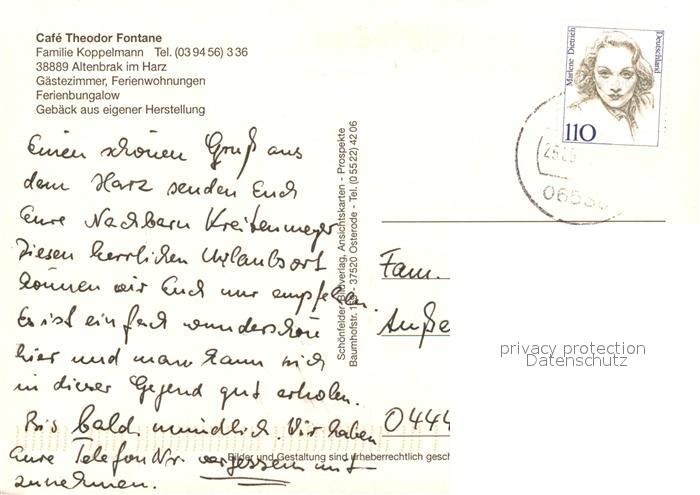 Café Theodor Fontane
Familie Koppelmann Tel. (03 94 56) 3 36
38889 Altenbrak im Harz
Gästezimmer, Ferienwohnungen
Ferienbungalow
Gebäck aus eigener Herstellung
Marlene Dietrich
Deutschland
110
0653
Einen schönen Gruß aus
dem Harz senden Euch
Eure Nachbarn Kreitenmeyer
Diesen herrlichen Urlaubsort
können wir Euch nur empfehlen.
Es ist einfach wunderschön
hier und man kann sich
in dieser Gegend gut erholen.
Bis bald, mündlich. Wir haben
Eure Telefon Nr. vergessen mit-
zunehmen.
Schönfelder Bildverlag, Ansichtskarten - Prospekte
Baumhofstr. - 37520 Osterode - Tel. (0 55 22) 42 06
Fam.
Auße
0444
privacy protection
Datenschutz
Bilder und Gestaltung sind urheberrechtlich gesch